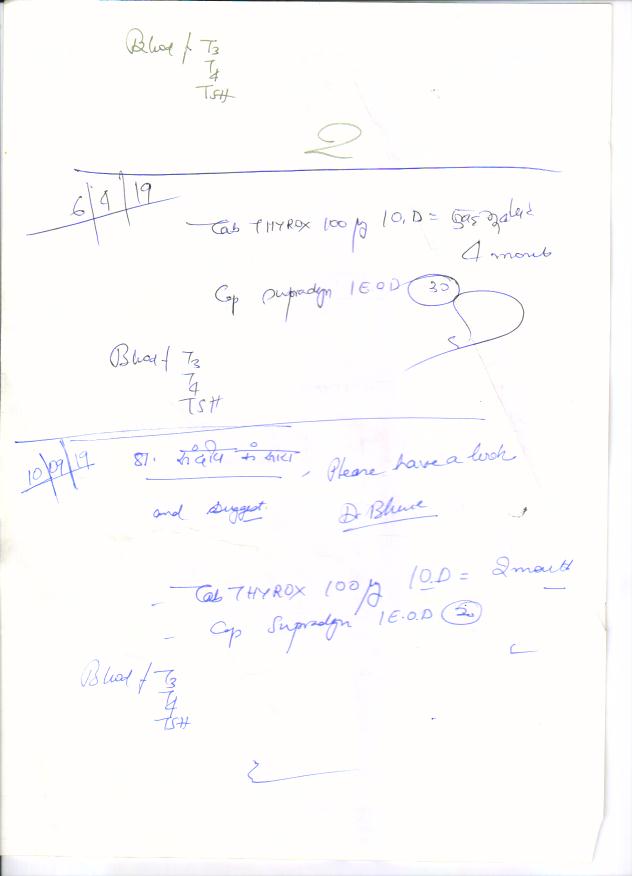 Blood f T3
T4
TSH
2
6/4/19
Tab THYROX 100 µg 1 O.D =
4 month
Cap Supradyn 1 E.O.D 30
Blood f T3
T4
TSH
10/09/19 डा. संदीप, Please have a look
and suggest. Dr
- Tab THYROX 100 µg 1 O.D = 2 month
- Cap Supradyn 1 E.O.D 30
Blood f T3
T4
TSH